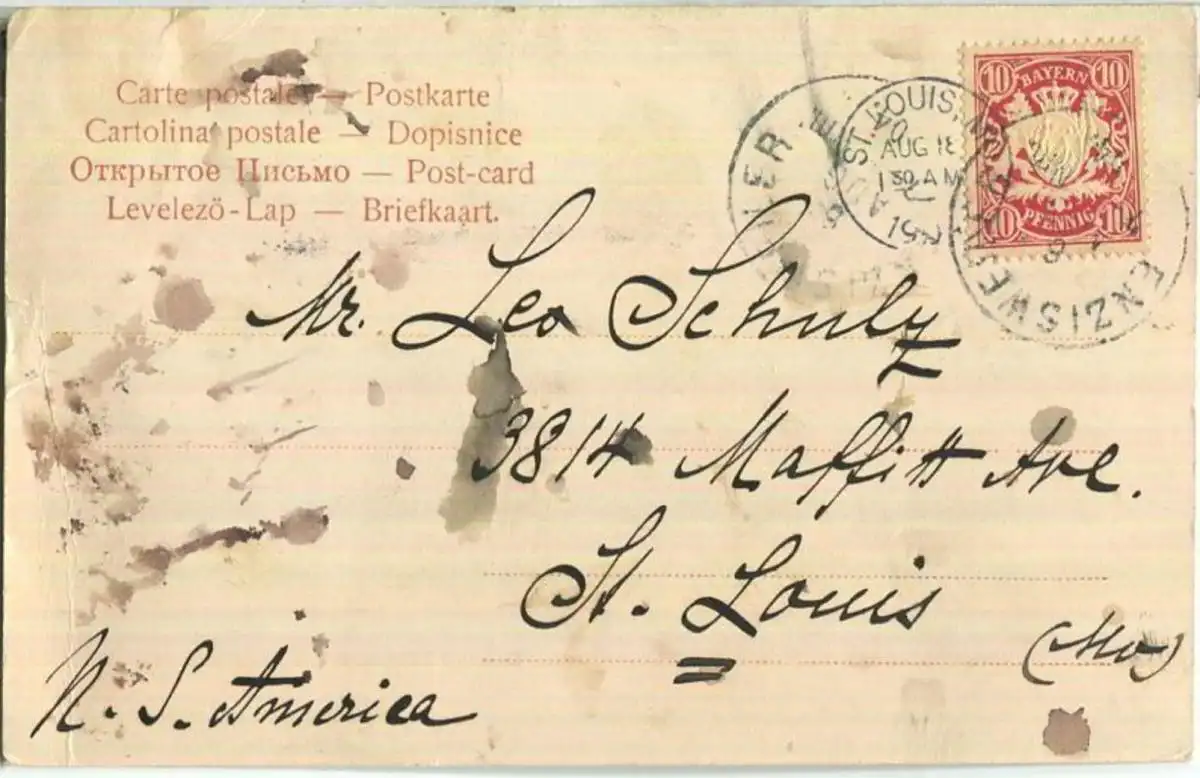 Carte postale — Postkarte
Cartolina postale — Dopisnice
Открытое Письмо — Post-card
Levelezö-Lap — Briefkaart.
ST. LOUIS, MO.
AUG 18
1 30 AM
ENZISWEILER
10 BAYERN 10
10 PFENNIG 10
Mr. Leo Schulz
3814 Maffitt Ave.
St. Louis
(Mo)
N. S. America